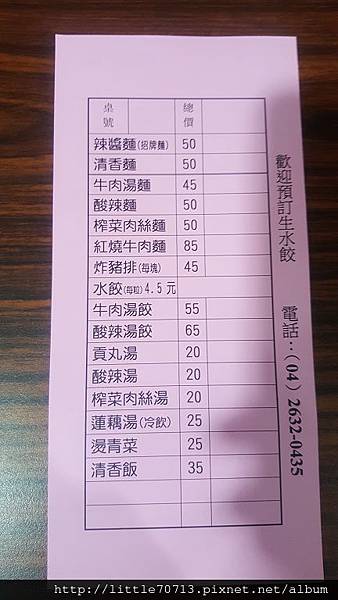 桌號 總價
辣醬麵(招牌麵) 50
清香麵 50
牛肉湯麵 45
酸辣麵 50
榨菜肉絲麵 50
紅燒牛肉麵 85
炸豬排(每塊) 45
水餃(每粒)4.5元
牛肉湯餃 55
酸辣湯餃 65
貢丸湯 20
酸辣湯 20
榨菜肉絲湯 20
蓮藕湯(冷飲) 25
燙青菜 25
清香飯 35
歡迎預訂生水餃 電話:(04)2632-0435
http://little70713.pixnet.net/album